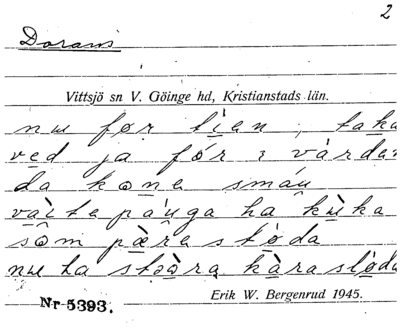 2
Dorans
Vittsjö sn V. Göinge hd, Kristianstads län.
nu før tien, taka
ved ja før i vårda
da kone små
vaite påuga ha kùka
sòm pære støda
nu ha stoòra kàra
Nr 5393. Erik W. Bergenrud 1945.